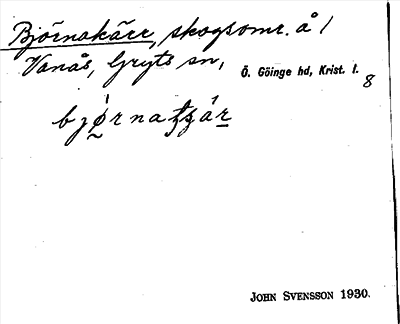 Björnakärr, skogsomr. å /
Vanås, Gryts sn,
Ö. Göinge hd, Krist. l.
8
JOHN SVENSSON 1930.